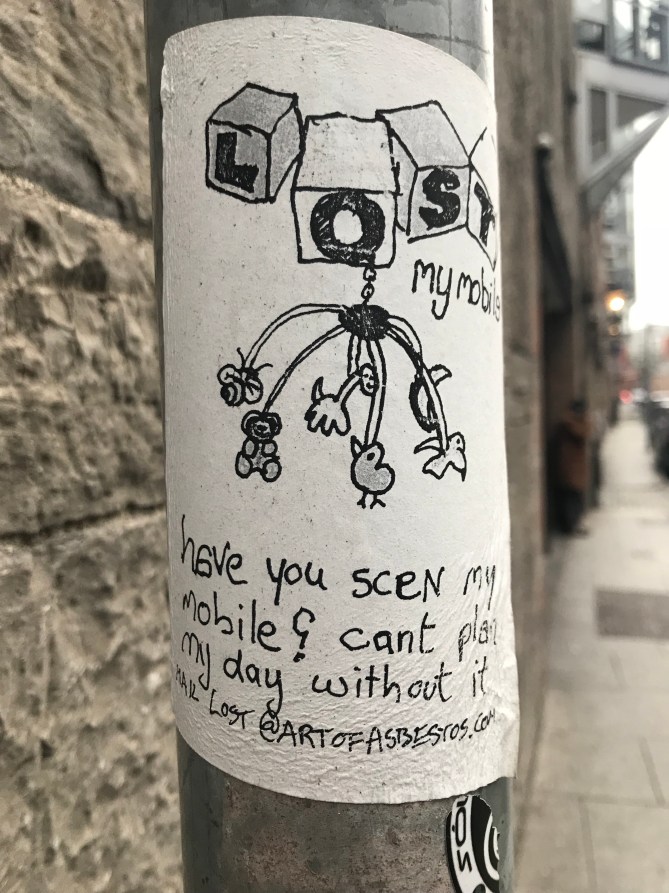 LOST
my mobile
have you scen my
mobile? cant plan
my day without it
MAIL LOST@ARTOFASBESTOS.COM